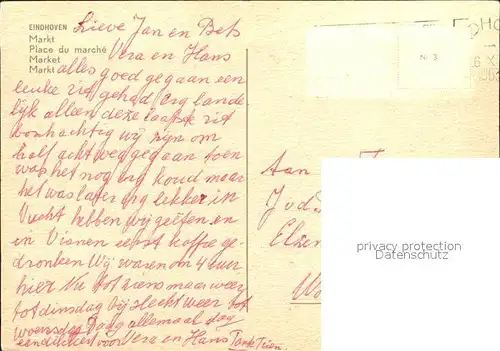 EINDHOVEN
Markt
Place du marché
Market
Markt
Lieve Jan en Bets
Vera en Hans
alles goed gegaan een
leuke rit gehad erg lande
lijk alleen deze laatste rit
boschachtig wij zijn om
half acht weg gegaan toen
was het nog erg koud maar
het was later erg lekker in
Vucht hebben wij gegeten en
in Vianen eerst koffie ge-
dronken Wij waren om 4 uur
hier Nu tot ziens maar weer
tot dinsdag bij slecht weer tot
woensdag Dag allemaal dag
voor Vera en Hans Tante Trien.
Nr. 3
Aan
privacy protection
Datenschutz